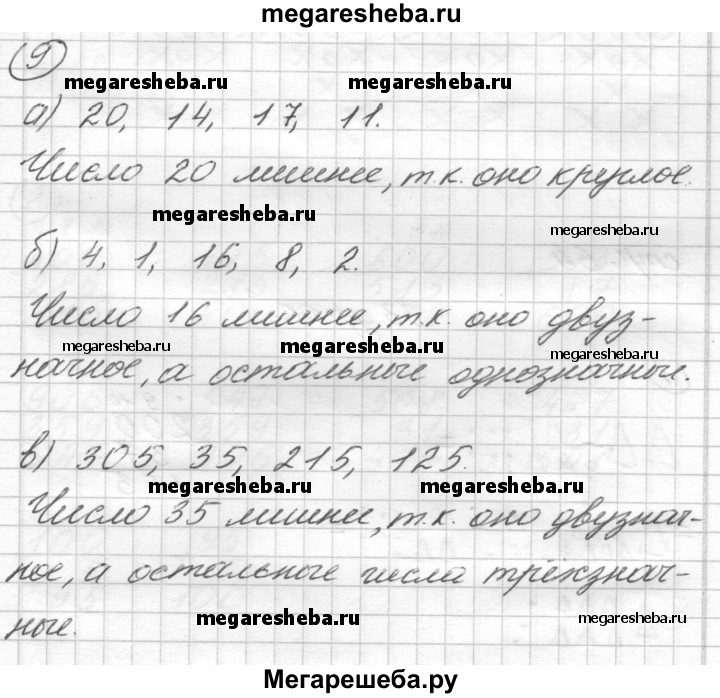 megaresheba.ru
9
megaresheba.ru megaresheba.ru
а) 20, 14, 17, 11.
Число 20 лишнее, т.к. оно круглое.
megaresheba.ru megaresheba.ru
б) 4, 1, 16, 8, 2.
Число 16 лишнее, т.к. оно двуз-
megaresheba.ru megaresheba.ru megaresheba.ru
начное, а остальные однозначные.
в) 305, 35, 215, 125.
megaresheba.ru megaresheba.ru
Число 35 лишнее, т.к. оно двузнач-
ное, а остальные числа трёхзнач-
ные.
megaresheba.ru megaresheba.ru
Мегарешеба.ру